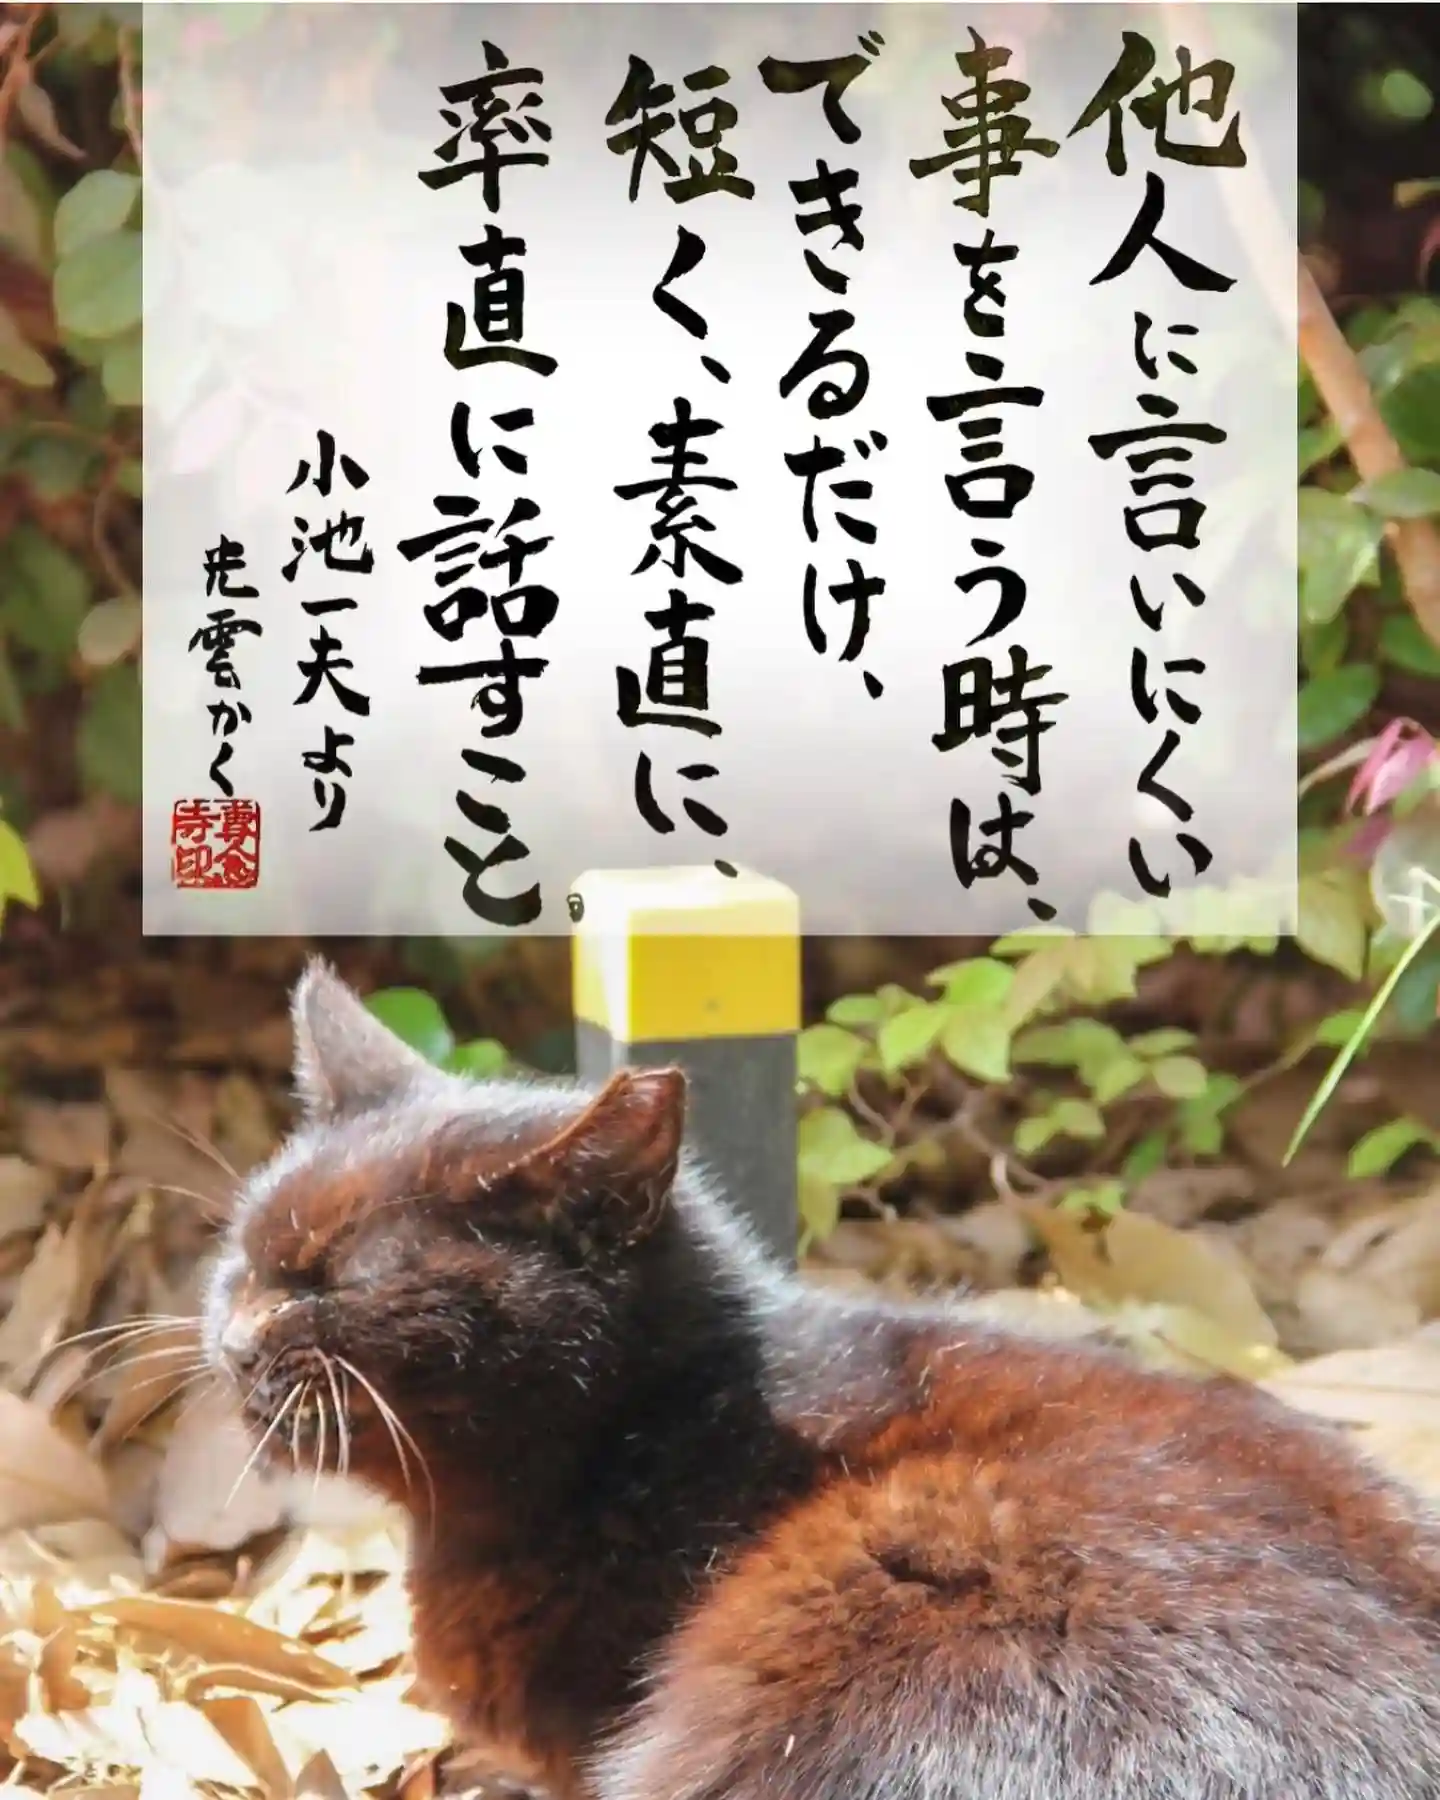 他人に言いにくい
事を言う時は、
できるだけ、
短く、素直に、
率直に話すこと
小池一夫より
光雲かく
尊念
寺印